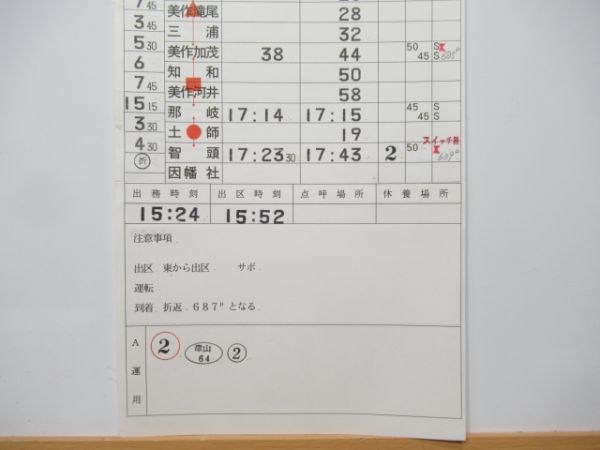 7 45 美作滝尾 28
3 45 三浦 32
5 30 美作加茂 38 44 50 45 S S
6 知和 50
7 45 美作河井 58
15 15 那岐 17:14 17:15 45 45 S S
3 30 土師 19
4 30 智頭 17:23 30 17:43 2 50 スイッチ
折 因幡社
出務時刻 出区時刻 点呼場所 休養場所
15:24 15:52
注意事項
出区 東から出区 サボ
運転
到着 折返 687" となる
A運用 2 岸山 64 2